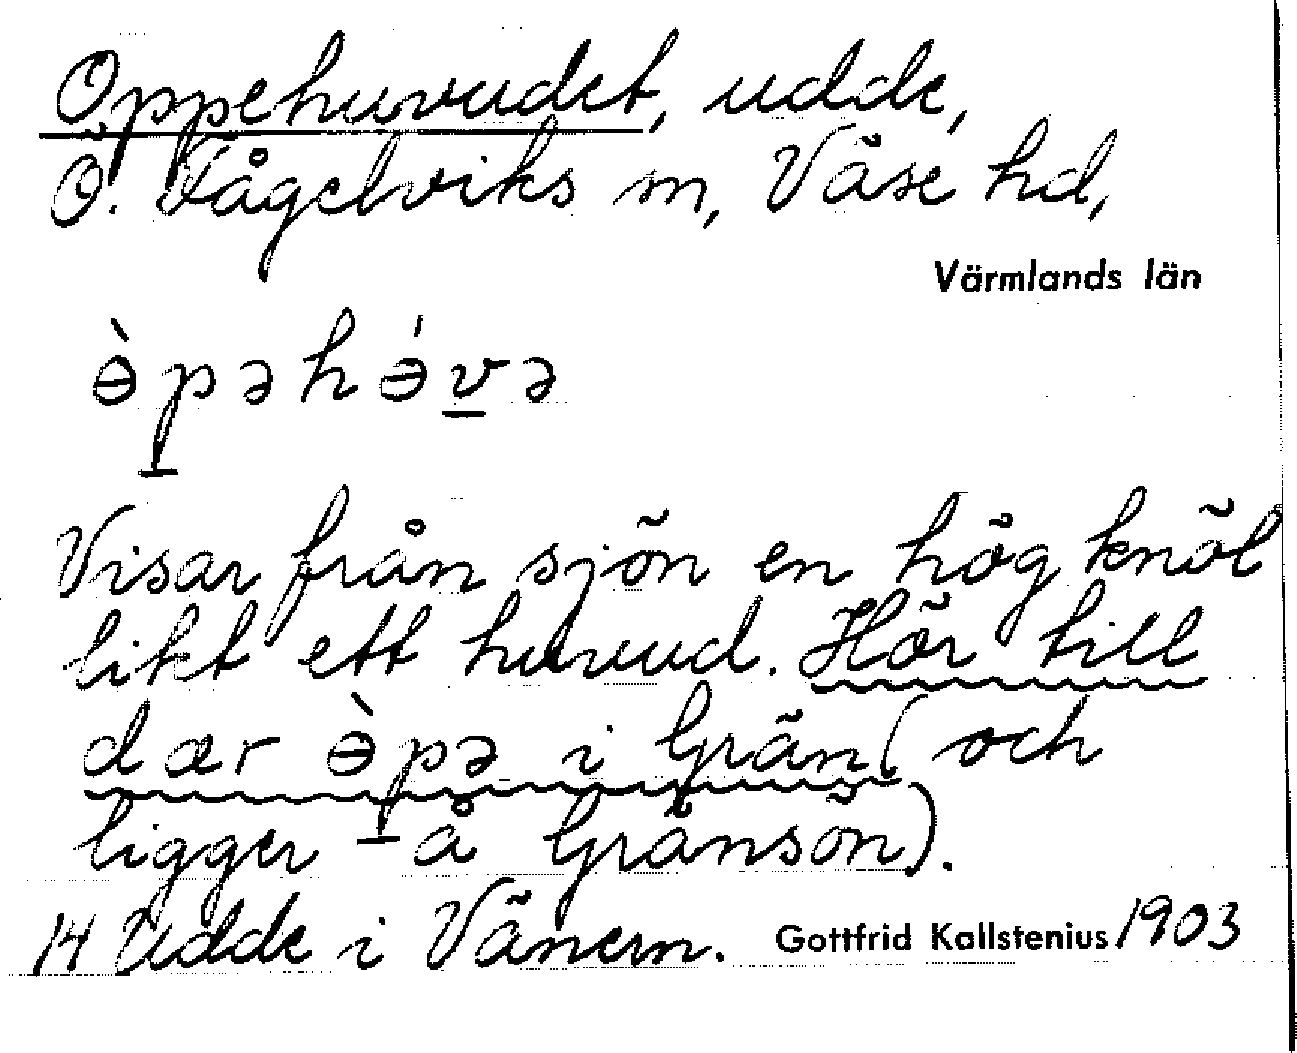 Oppehuvudet, udde,
Ö. Fågelviks sn, Väse hd,
Värmlands län
ɵ̀pəhɵ́və
Visar från sjön en hög knöl
likt ett huvud. Hör till
dær ɵ̀pə i Grän (och
ligger å Gränsön).
14 Udde i Vänern. Gottfrid Kallstenius 1903